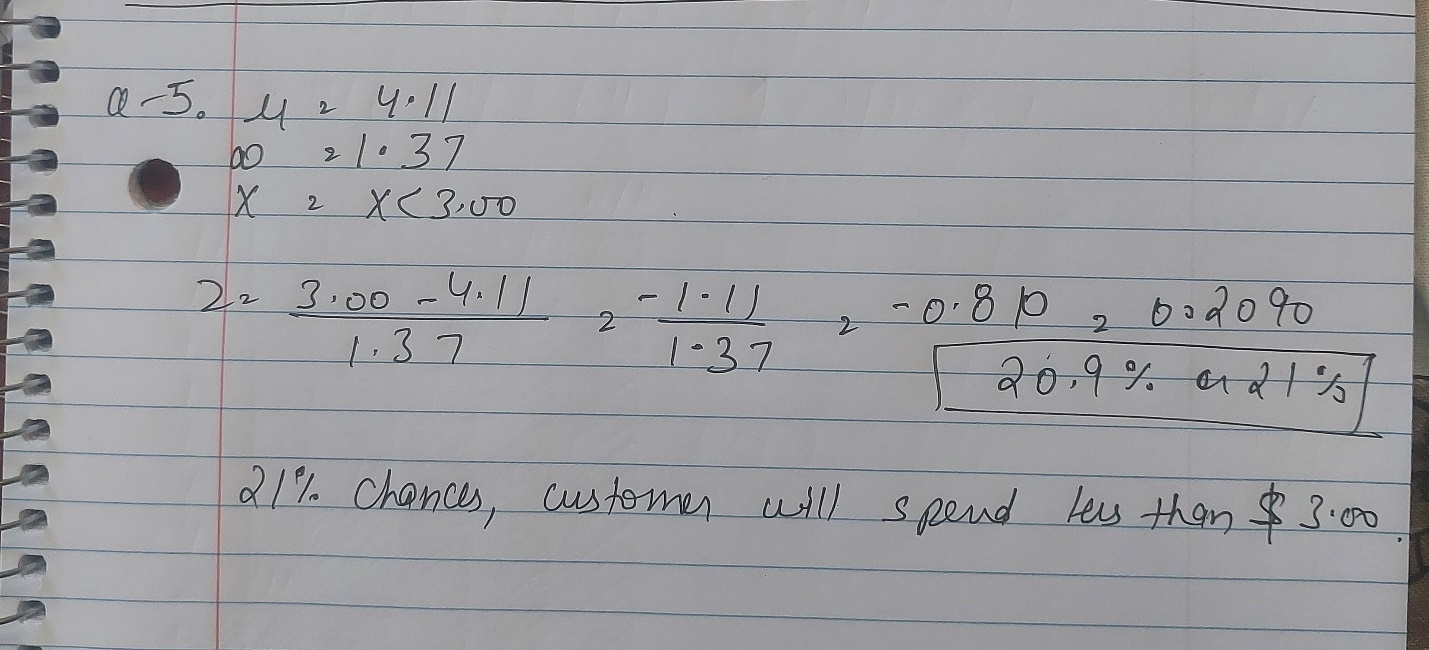 Q-5. μ = 4.11
σ = 1.37
X = X<3.00
Z = 3.00 - 4.11 / 1.37 = -1.11 / 1.37 = -0.810 = 0.2090
20.9% or 21%
21% chances, customer will spend less than $3.00.